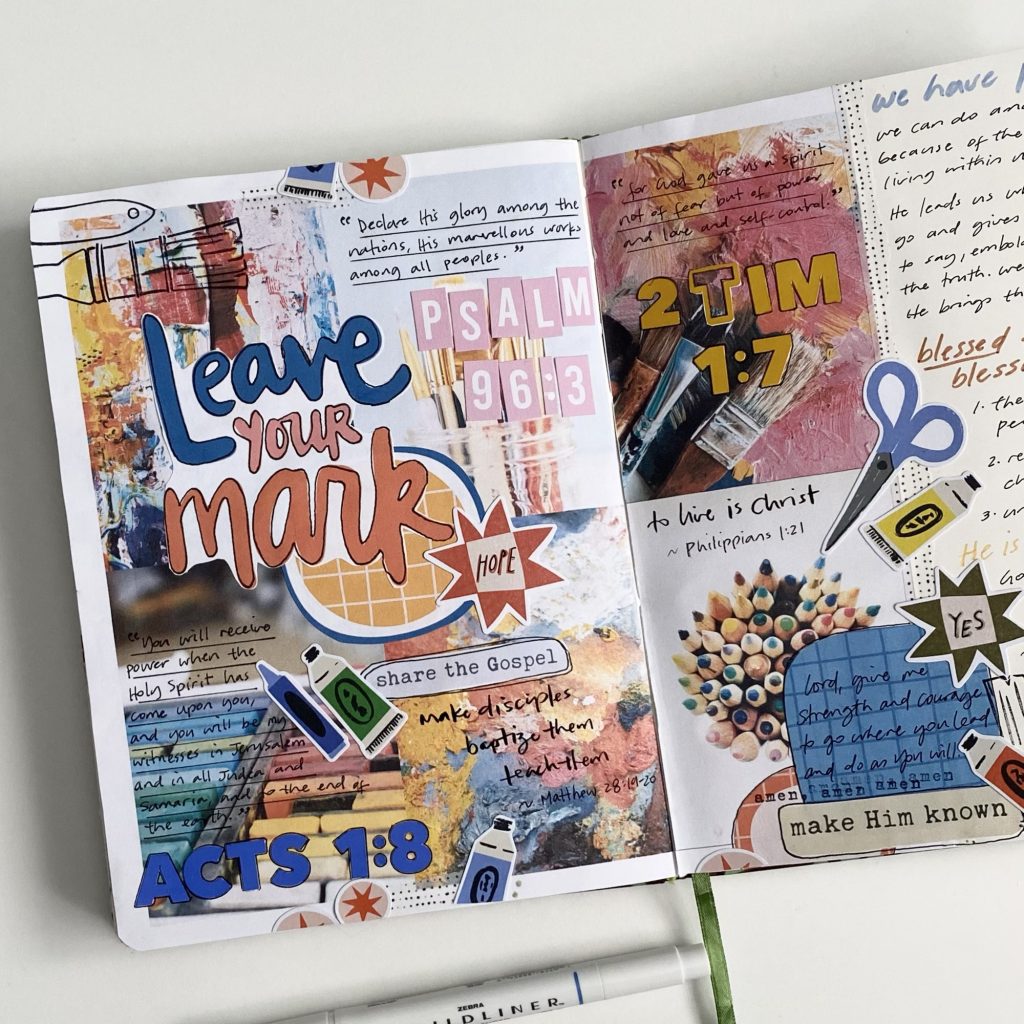 "Declare His glory among the
nations, His marvellous works
among all peoples."
PSALM
96:3
Leave
YOUR
mark
HOPE
"You will receive
power when the
Holy Spirit has
come upon you,
and you will be my
witnesses in Jerusalem
and in all Judea and
Samaria, and to the end of
the earth."
ACTS 1:8
share the Gospel
make disciples
baptize them
teach them
~ Matthew 28:19-20
"for God gave us a spirit
not of fear but of power
and love and self-control."
2 TIM
1:7
to live is Christ
~ Philippians 1:21
YES
Lord, give me
strength and courage
to go where you lead
and do as you will
amen, amen amen
make Him known
we have
we can do
because of the
living within
He leads us
go and gives
to say,
the truth. we
He brings the
blessed
1. the
2. re
3. un
He is
ZEBRA